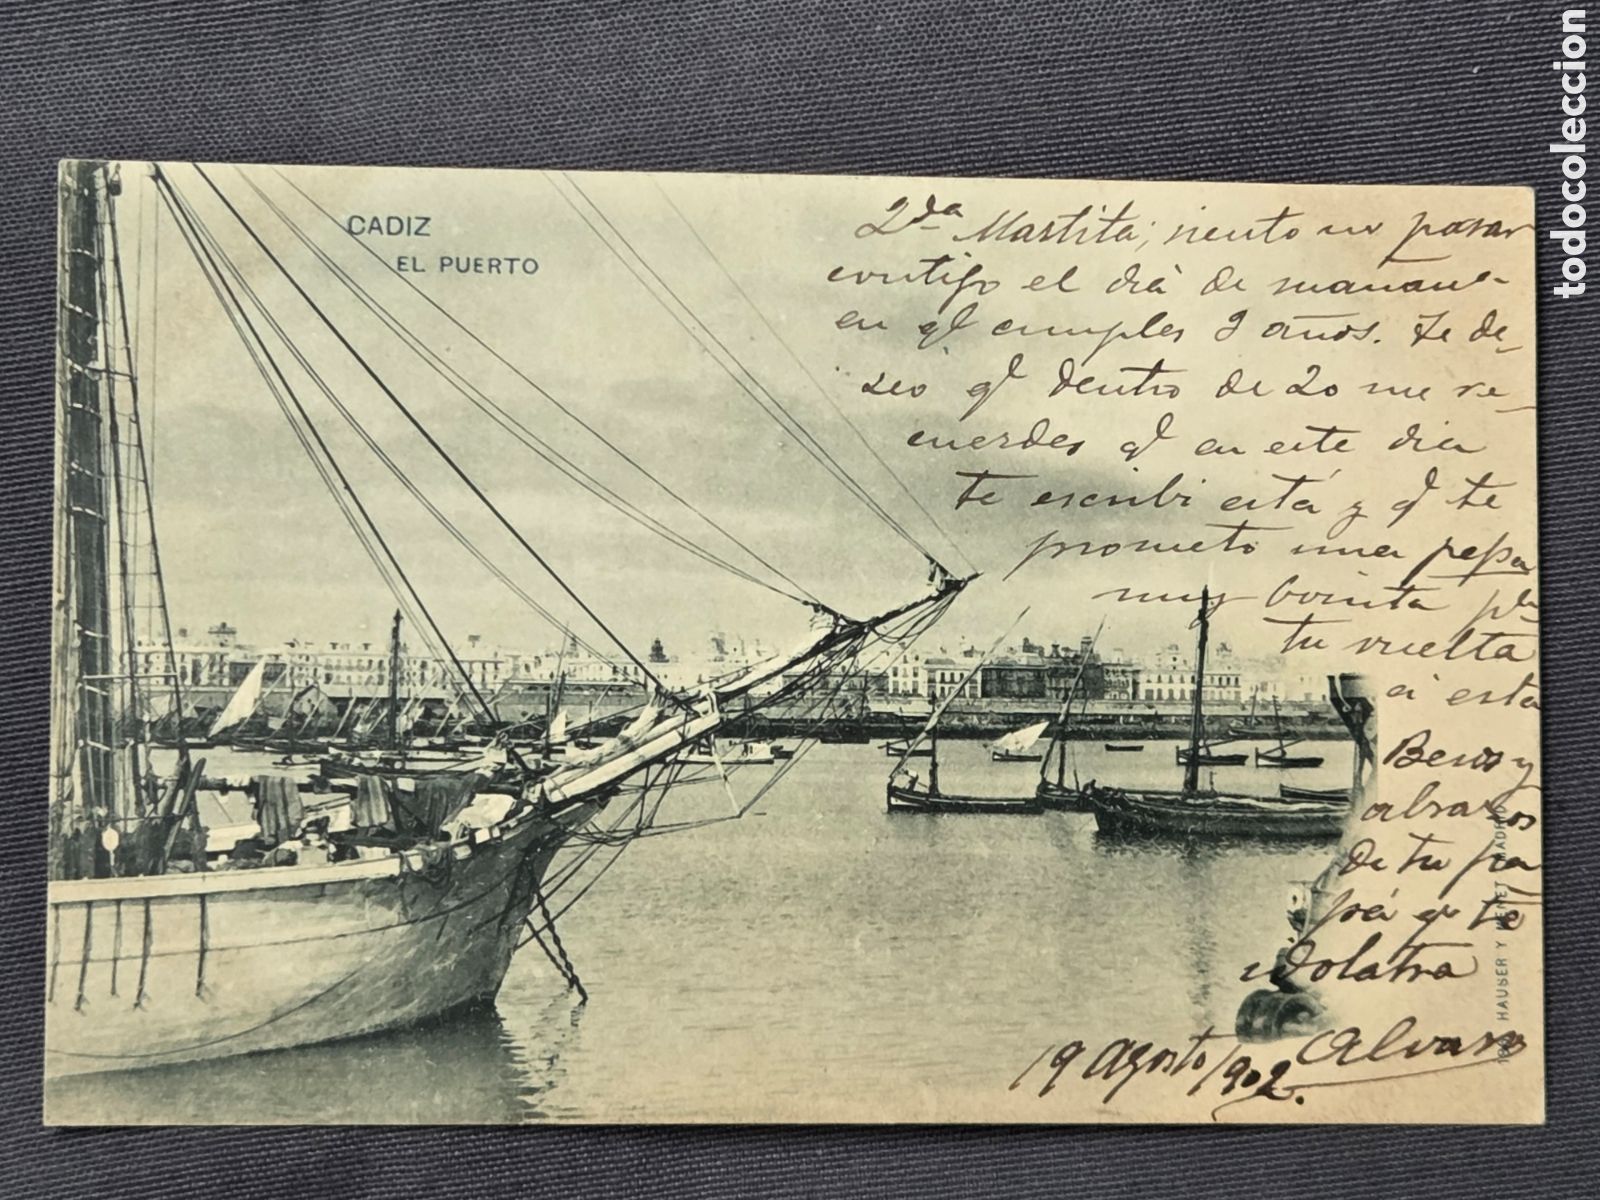 CADIZ
EL PUERTO
2da Mastita; siento no pasar
contigo el dia de mañana
en ql cumples 2 años. Te de-
seo ql dentro de 20 me re-
cuerdes ql en este dia
te escribi esta y ql te
prometo una pepa
muy bonita pla
tu vuelta
a esta
Besos y
abrazos
de tu pa
pá qe te
idolatra
Alvaro
19 Agosto/902.
HAUSER Y MENET MADRID
todocoleccion